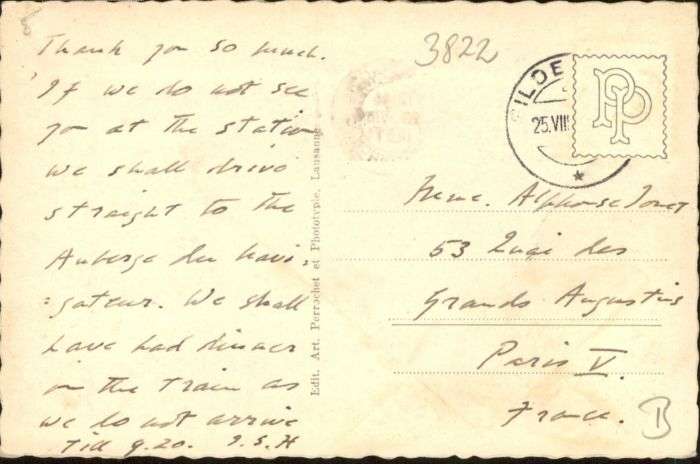 Thank you so much.
If we do not see
you at the station
we shall drive
straight to the
Auberge du Navi-
=gateur. We shall
have had dinner
on the train as
we do not arrive
till 9.20. I.S.H
Edit. Art. Perrochet et Phototypie, Lausanne
3822
25.VIII
PP
Mme. Alphonse
53 Quai des
Grands Augustins
Paris V.
France.
B